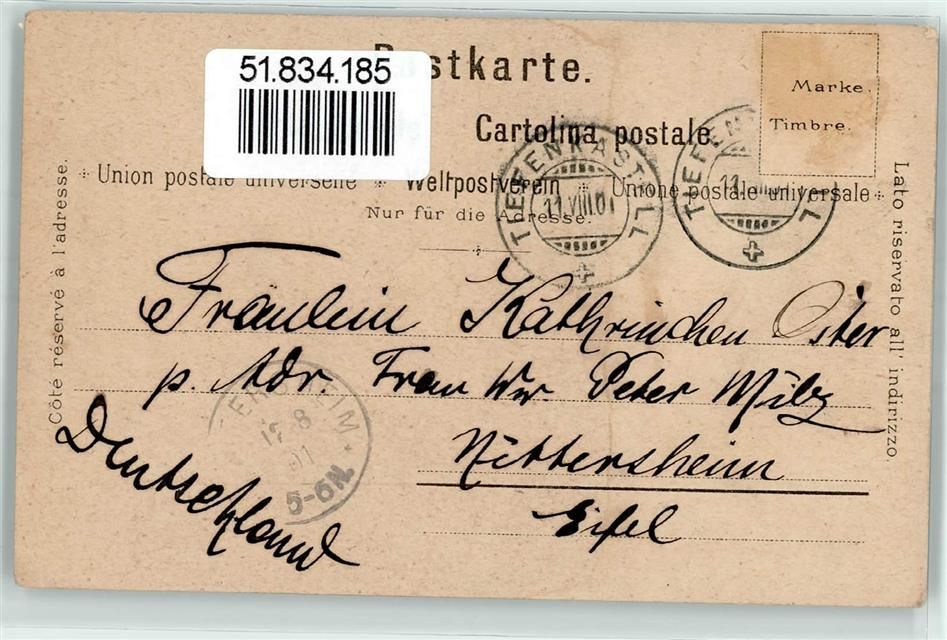 51.834.185
stkarte.
Marke.
Timbre.
Cartolina postale.
Union postale universelle * Weltpostverein * Unione postale universale
Nur für die Adresse.
TIEFENKASTELL
11.VIII.01
TIEFENK LL
11.VIII.01
Côté réservé à l'adresse.
Lato riservato all' indirizzo.
Fräulein Kathrinchen Oster
p. Adr. Frau Ww Peter Milz
Nittersheim
Eifel
Deutschland
ERSHEIM
8
5-6N.